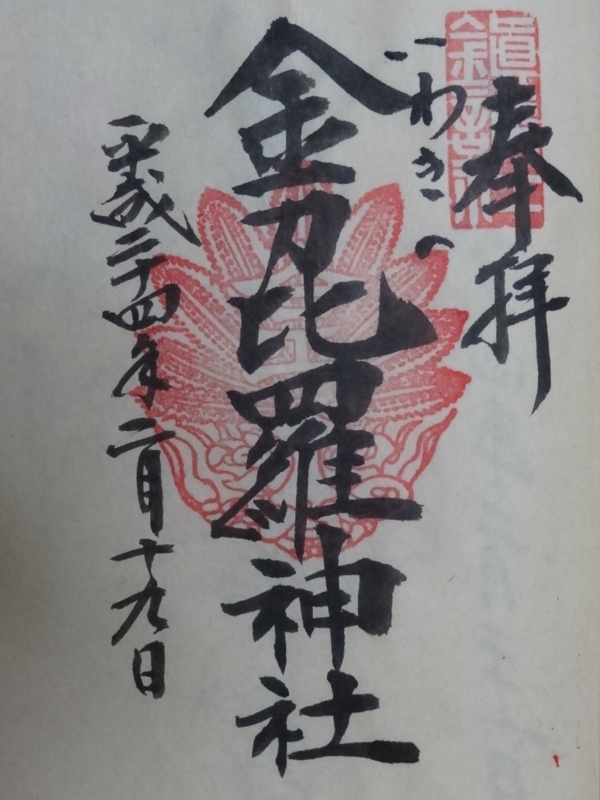 奉拝
いわきの
金刀比羅神社
平成二十四年二月十九日